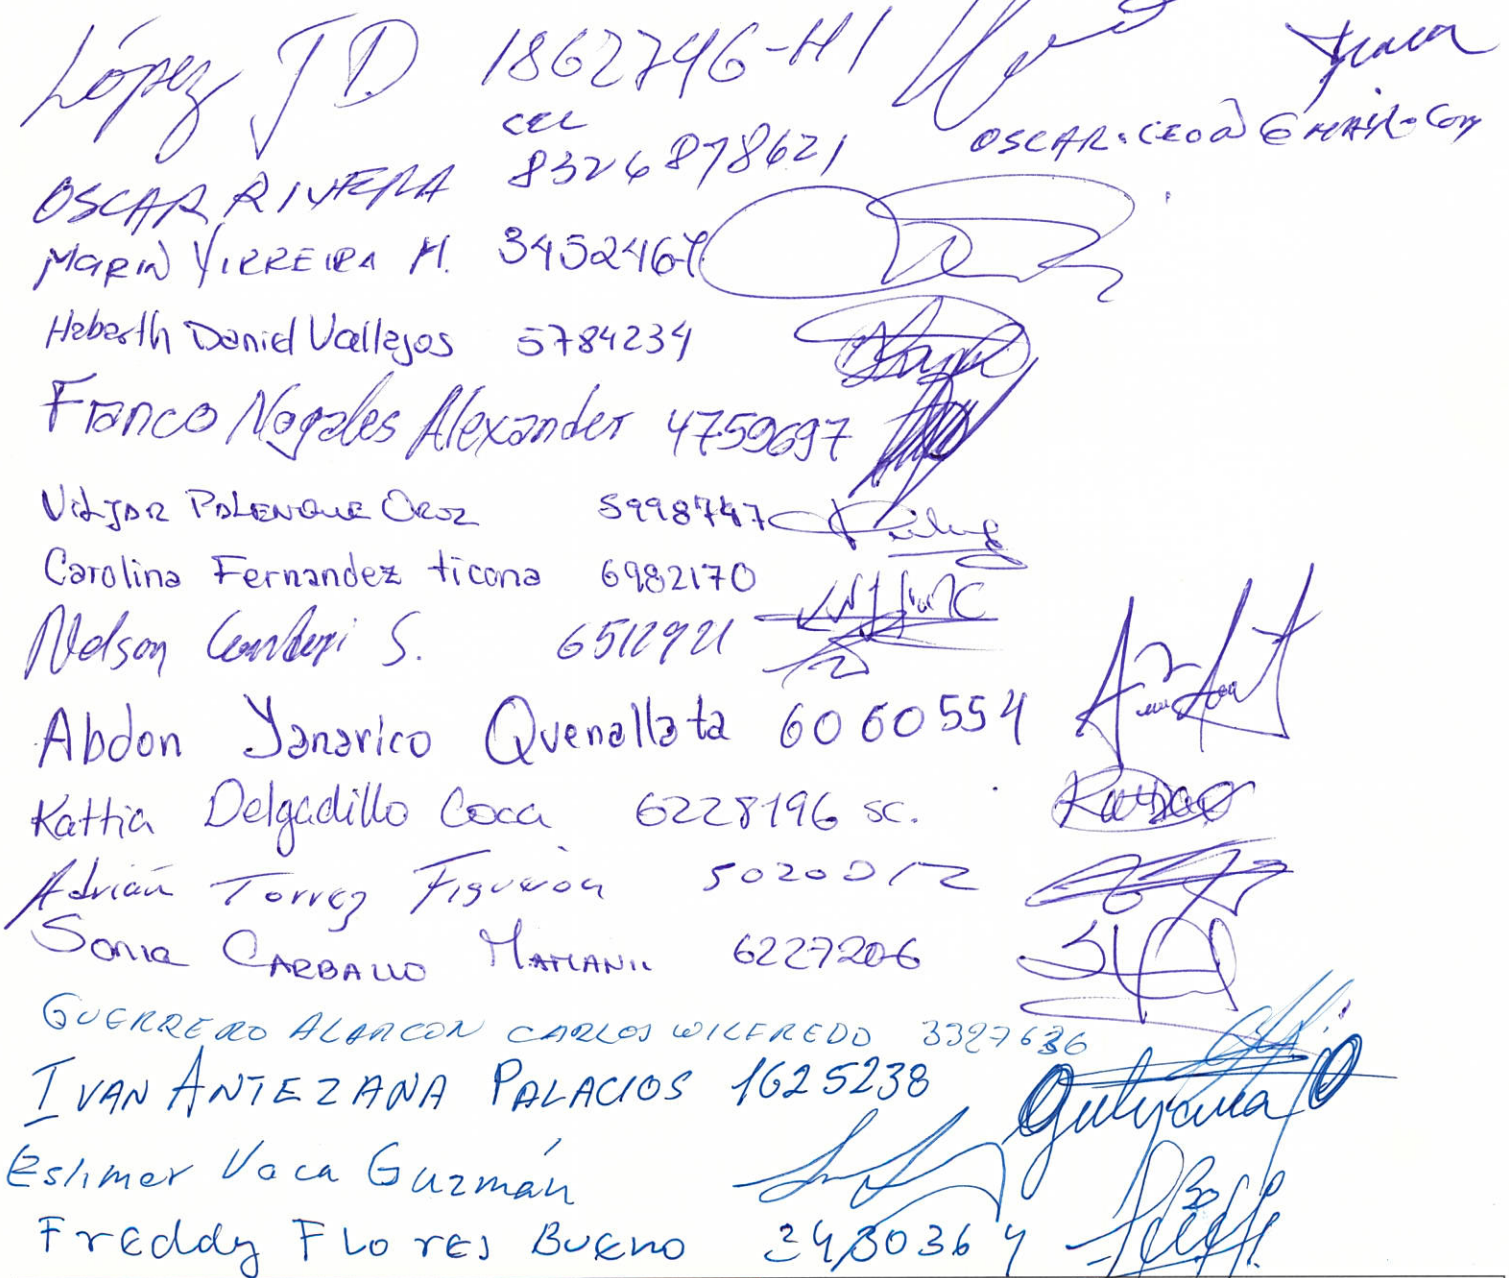 López J D 1862746-H1
cel
OSCAR RIVERA 8326878621 OSCAR.CEO@GMAIL.COM
MARIN VIRREIRA H. 3452467
Heberth Daniel Vallejos 5784234
Franco Nogales Alexander 4759697
VILJAR PALENQUE CRUZ 5998747
Carolina Fernandez ticona 6982170
Nelson S. 6512921
Abdon Yanarico Quenallata 6060554
Kattia Delgadillo Coca 6228196 SC.
Adrián Torrez Figueroa 5020012
Sonia CARBALLO MAMANI 6227206
GUERRERO ALARCON CARLOS WILFREDO 3327636
IVAN ANTEZANA PALACIOS 1625238
Eslimer Vaca Guzmán
Freddy Flores Bueno 3480364